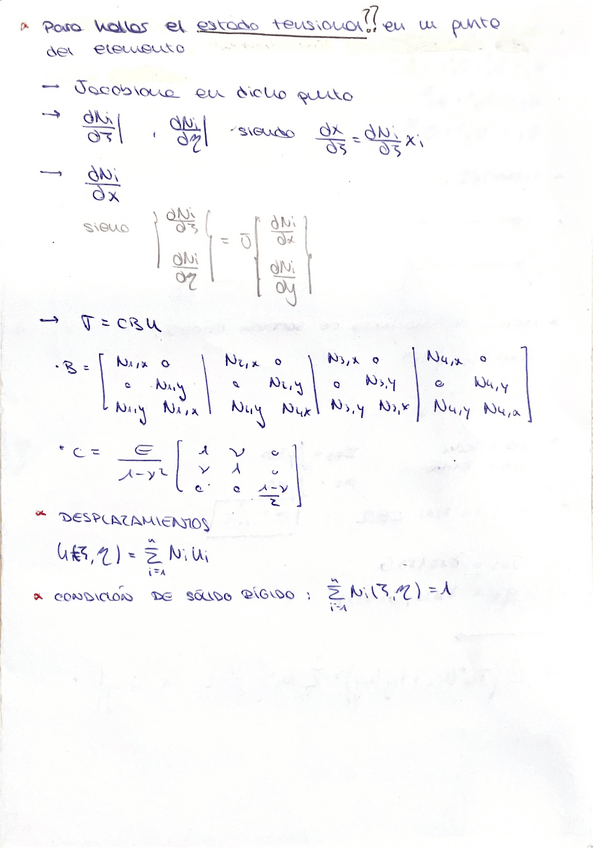 Para hallar el estado tensional?? en un punto
del elemento
→ Jacobiana en dicho punto
→ dNi/dξ| , dNi/dη| siendo dx/dξ = dNi/dξ xi
→ dNi/dx
sieno {dNi/dξ dNi/dη} = J {dNi/dx dNi/dy}
→ σ = CBU
· B = [ N1,x 0 | N2,x 0 | N3,x 0 | N4,x 0
0 N1,y | 0 N2,y | 0 N3,y | 0 N4,y
N1,y N1,x | N2,y N2,x | N3,y N3,x | N4,y N4,x ]
· C = E/1-ν² [ 1 ν 0
ν 1 0
0 0 1-ν/2 ]
DESPLAZAMIENTOS
U(ξ,η) = Σ i=1 n Ni Ui
CONDICIÓN DE SÓLIDO RÍGIDO : Σ i=1 n Ni(ξ,η) = 1